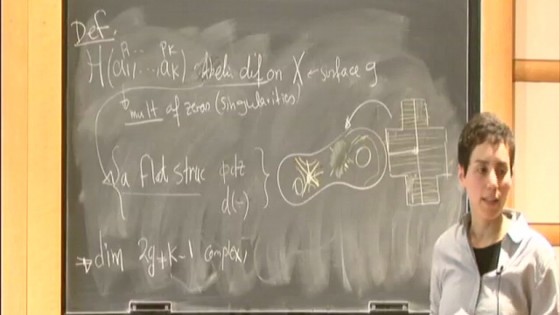 Def.
P1 ... Pk
H(a1, ..., ak) dif on X surface g
mult of zeros (singularities)
a flat struc φdz
d(-)
dim 2g+k-1 complex